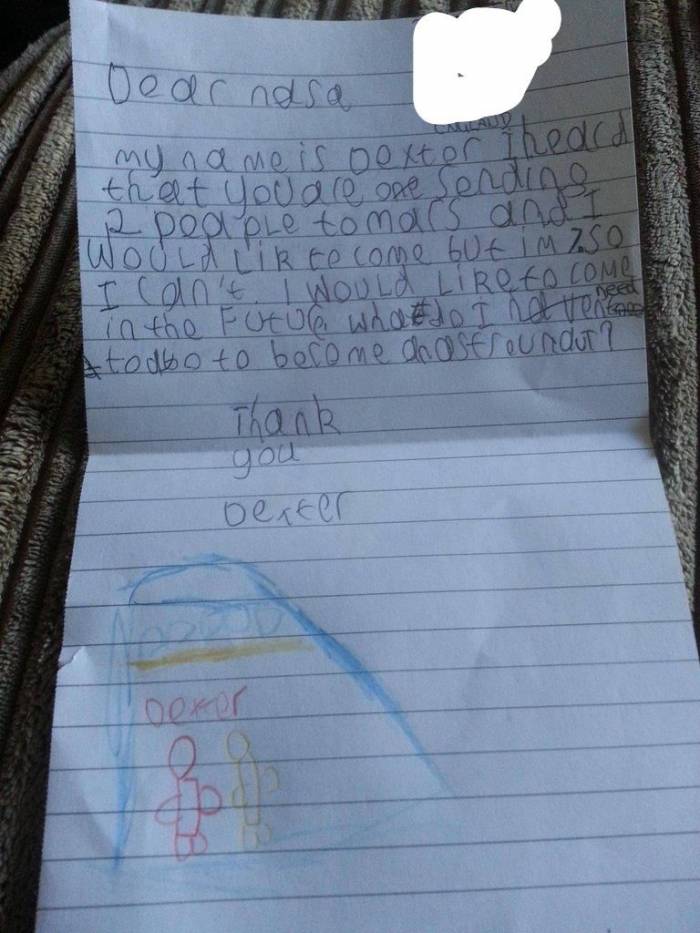 Dear nasa
ENGLAND
my name is Dexter I heard
that you are sending
2 peaple to mars and I
Would Lik to come but im 7. so
I Can't. I Would Like to come
in the Future. What do I need
to do to become an astrounaut?
Thank
you
Dexter
Dexter